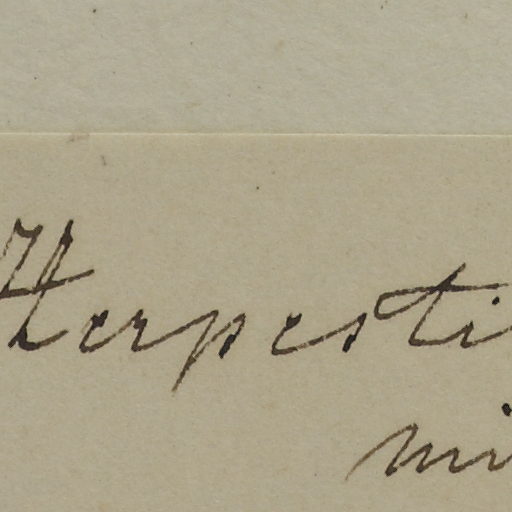 Herpesti
mi